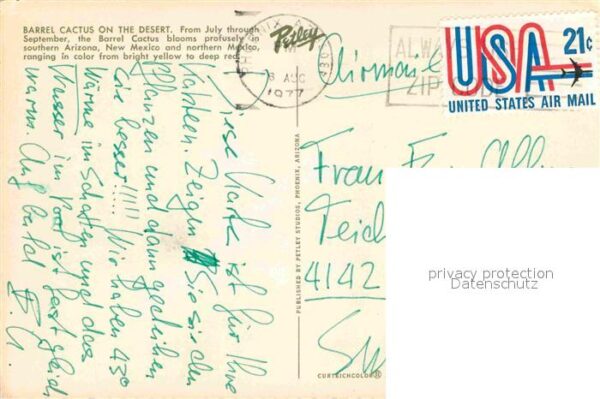 BARREL CACTUS ON THE DESERT. From July through
September, the Barrel Cactus blooms profusely in
southern Arizona, New Mexico and northern Mexico,
ranging in color from bright yellow to deep red.
Petley
PHOENIX, AZ
8 AUG
1977
ALWAYS
ZIP CODE
USA 21¢
UNITED STATES AIR MAIL
Airmail
Diese Karte ist für Ihre
Kakteen. Zeigen Sie sie den
Pflanzen und dann gedeihen
sie besser!!!!! Wir haben 43°
Wärme im Schatten und das
Wasser im Pool ist fast gleich
warm. Auf bald
PUBLISHED BY PETLEY STUDIOS, PHOENIX, ARIZONA
CURTEICHCOLOR®
Frau
Teich
4142
privacy protection
Datenschutz